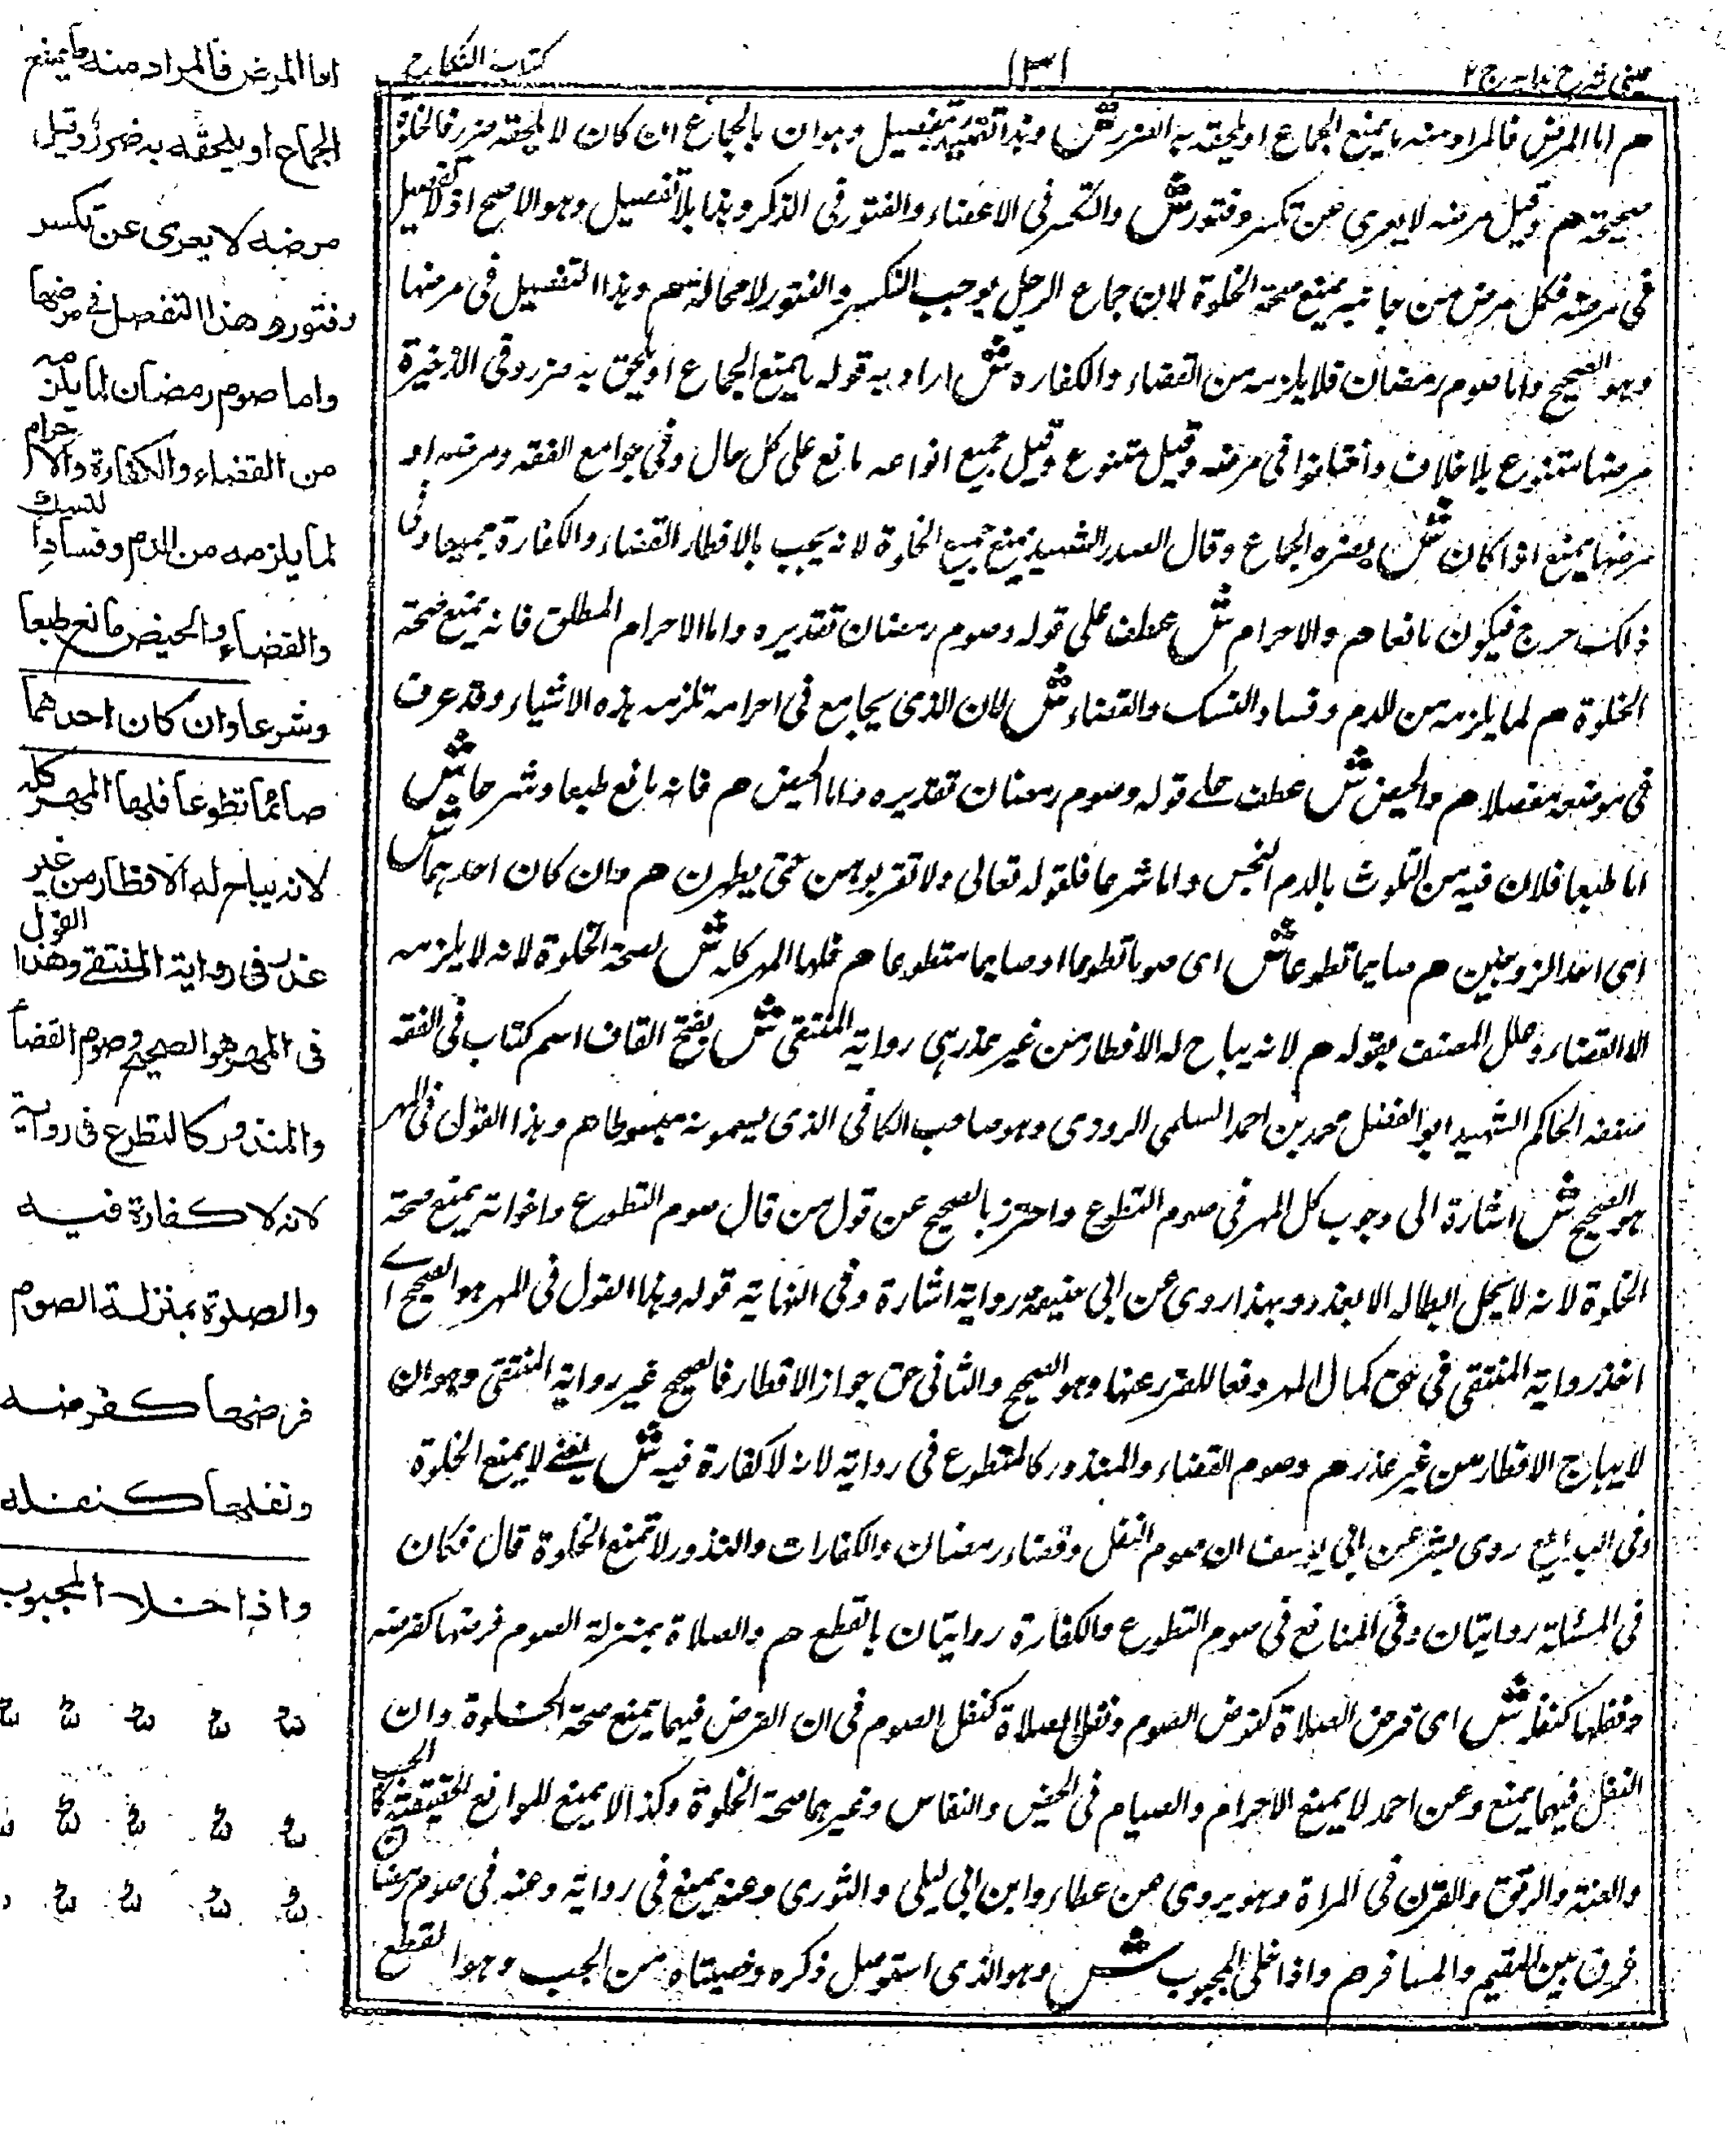 عینی شرح هدایه ج ۲
۱۳۱
كتاب النكاح
هم اما المرض فالمراد منه ما يمنع الجماع او يلحقه به الضرر ش وهذا تفصيل وهو ان بالجماع ان كان لا يلحقه ضرر فالخلوة
صحيحة هم وقيل مرضه لا يعرى عن تكسر وفتور ش والتكسر فى الاعضاء والفتور فى الذكر وهذا بلا تفصيل وهو الاصح اذ لا تفصيل
فى مرضه فكل مرض من جانبه يمنع صحة الخلوة لان جماع الرجل يوجب التكسر والفتور لا محالة هم وهذا التفصيل فى مرضها
وهو الصحيح واما صوم رمضان فلما يلزمه من القضاء والكفاره ش اراد به قوله ما يمنع الجماع او يلحق به ضرر وفى الذخيرة
مرضها متنوع بلا خلاف واختلفوا فى مرضه وقيل متنوع وقيل جميع انواعه مانع على كل حال وفى جوامع الفقه ومرضه او
مرضها يمنع اذا كان ش يضره الجماع وقال الصدر الشهيد يمنع جميع الخلوة لانه يجب بالافطار القضاء والكفارة جميعا وفى
ذلك حرج فيكون مانعا هم والاحرام ش عطف على قوله وصوم رمضان تقديره واما الاحرام المطلق فانه يمنع صحة
الخلوة هم لما يلزمه من الدم وفساد النسك والقضاء ش لان الذى يجامع فى احرامه تلزمه هذه الاشياء وقد عرف
فى موضعه مفصلا هم والحيض ش عطف على قوله وصوم رمضان تقديره واما الحيض هم فانه مانع طبعا وشرعا ش
اما طبعا فلان فيه من التلوث بالدم النجس واما شرعا فلقوله تعالى ولا تقربوهن حتى يطهرن هم وان كان احدهما ش
اى احد الزوجين هم صايما تطوعا ش اى صوما تطوعا او صايما متطوعا هم فلها المهر كله ش لصحة الخلوة لانه لا يلزمه
الا القضاء وعلل المصنف بقوله هم لانه يباح له الافطار من غير عذر فى رواية المنتقى ش بفتح القاف اسم كتاب فى الفقه
صنفه الحاكم الشهيد ابو الفضل محمد بن احمد السلمى المروزى وهو صاحب الكافى الذى يسمونه مبسوطا هم وهذا القول فى المهر
هو الصحيح ش اشارة الى وجوب كل المهر فى صوم التطوع واحترز بالصحيح عن قول من قال صوم التطوع واخواته يمنع صحة
الخلوة لانه لا يحل ابطاله الا بعذر وبهذا روى عن ابى حنيفة رواية اشارة وفى النهاية قوله وهذا القول فى المهر هو الصحيح اے
اخذ رواية المنتقى فى حق كمال المهر دفعا للضرر عنها وهو الصحيح والثانى حق جواز الافطار فالصحيح غير رواية المنتقى وهو ان
لا يباح الافطار من غير عذر هم وصوم القضاء والمنذور كالتطوع فى رواية لانه لا كفارة فيه ش يعنے لا يمنع الخلوة
وفى البدائع روى بشر عن ابى يوسف ان صوم النفل وقضاء رمضان والكفارات والنذور لا تمنع الخلوة قال فكان
فى المسئلة روايتان وفى المنافع فى صوم التطوع والكفارة روايتان بالقطع هم والصلاة بمنزلة الصوم فرضها كفرضه
ونفلها كنفله ش اى فرض الصلاة كفرض الصوم ونفل الصلاة كنفل الصوم فى ان الفرض فيهما يمنع صحة الخلوة وان
النفل فيهما يمنع وعن احمد لا يمنع الاحرام والصيام فى الحيض والنفاس وغيرهما صحة الخلوة وكذا لا يمنع للموانع الحقيقية كالجب
والعنة والرتق والقرن فى المراة وهو يروى عن عطاء وابن ابى ليلى والثورى وعنه يمنع فى رواية وعنه فى صوم رمضان
فرق بين المقيم والمسافر هم واذا خلى المجبوب ش وهو الذى استوصل ذكره وخصيتاه من الجب وهو القطع
اما المرض فالمراد منه ما يمنع
الجماع او يلحقه به ضرر وقيل
مرضه لا يعرى عن تكسر
وفتور وهذا التفصل فى مرضها
واما صوم رمضان لما يلزمه
من القضاء والكفارة والاحرام
لما يلزمه من الدم وفساد النسك
والقضاء والحيض مانع طبعا
وشرعا وان كان احدهما
صائما تطوعا فلها المهر كله
لانه يباح له الافطار من غير
عذر فى رواية المنتقے وهذا القول
فى المهر هو الصحيح وصوم القضاء
والمنذور كالتطوع فى رواية
لانه لا كفارة فيه
والصلوة بمنزلة الصوم
فرضها كفرضه
ونفلها كنفله
واذا خلا المجبوب